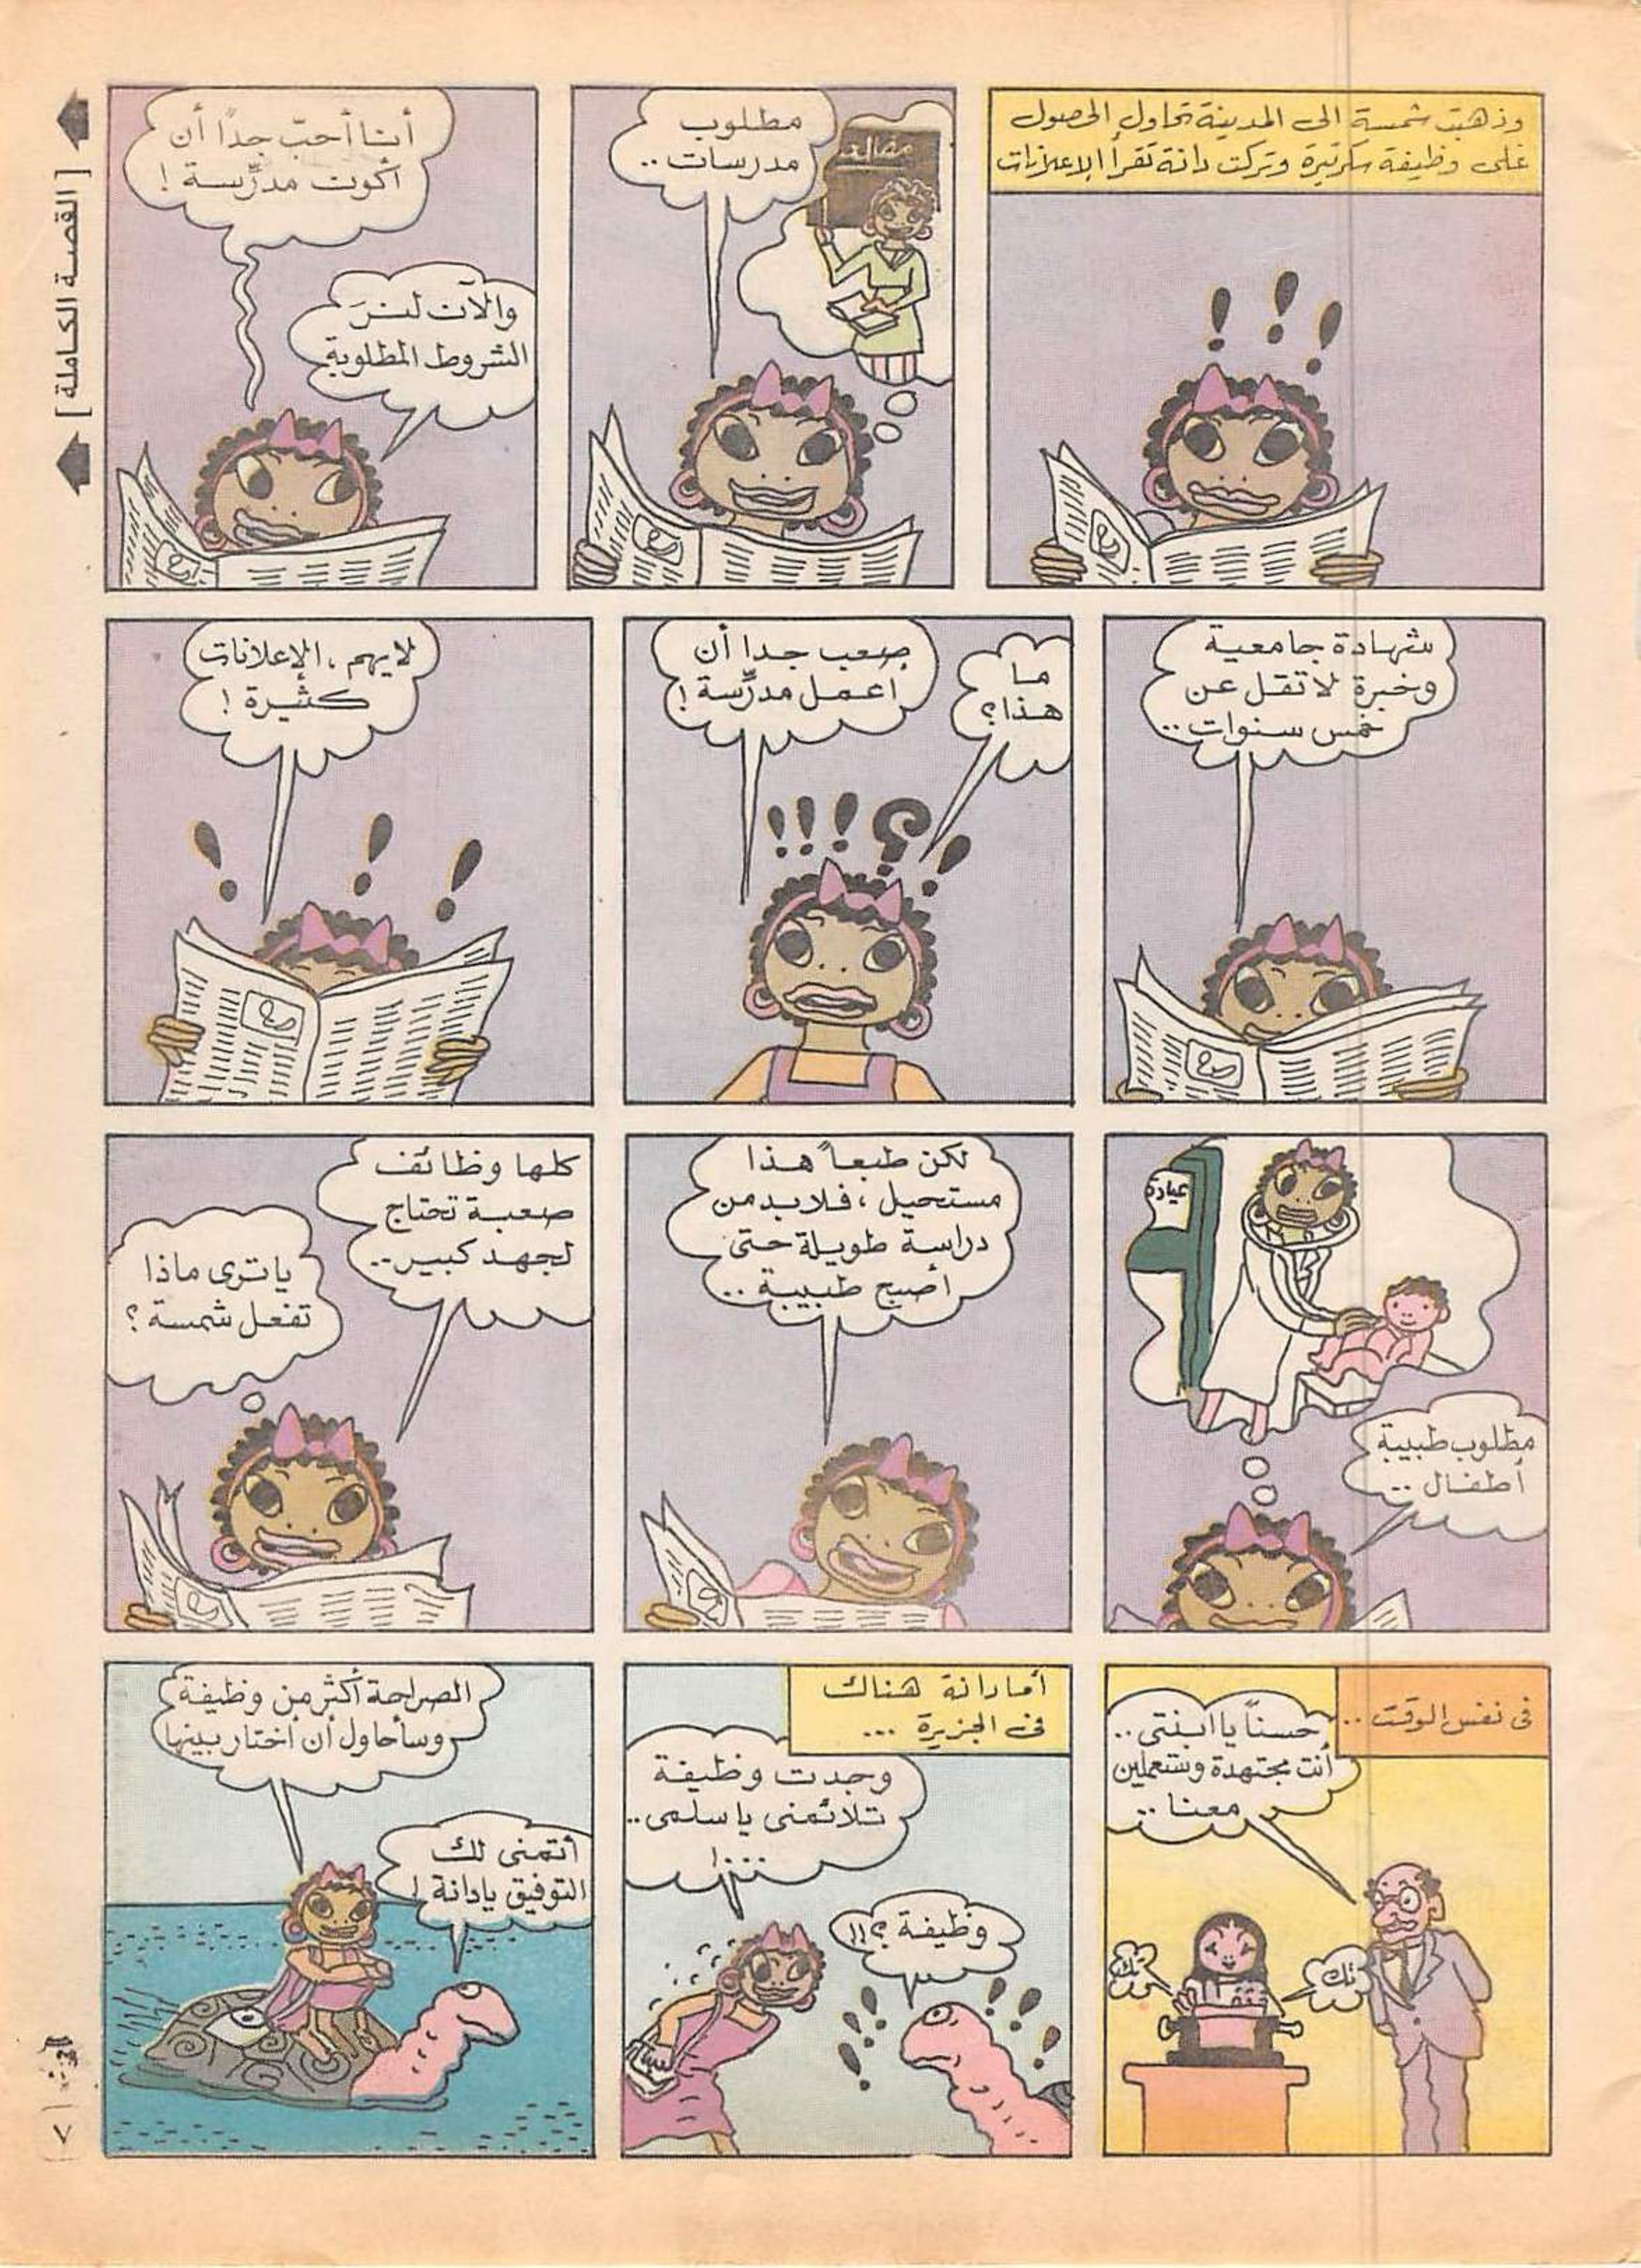 وذهبت شمسة إلى المدينة تحاول الحصول
على وظيفة سكرتيرة وتركت دانة تقرأ الإعلانات
مطلوب
مدرسات ..
أنا أحبّ جدًا أن
أكون مدرّسة !
والآن لنرَ
الشروط المطلوبة
[ القصة الكاملة ]
شهادة جامعية
وخبرة لا تقل عن
خمس سنوات ..
ما
هذا؟
صعب جدا أن
أعمل مدرّسة !
لا يهم ، الإعلانات
كثيرة !
عيادة
مطلوب طبيبة
أطفال ..
لكن طبعاً هذا
مستحيل ، فلابد من
دراسة طويلة حتى
أصبح طبيبة ..
كلها وظائف
صعبة تحتاج
لجهد كبير ..
يا ترى ماذا
تفعل شمسة ؟
فى نفس الوقت ..
حسناً يا ابنتى ..
أنت مجتهدة وستعملين
معنا ..
تك
تك
أما دانة هناك
فى الجزيرة ...
وجدت وظيفة
تلائمنى يا سلمى ..
وظيفة ؟!!
الصراحة أكثر من وظيفة
وسأحاول أن أختار بينها
أتمنى لك
التوفيق يا دانة !
٧